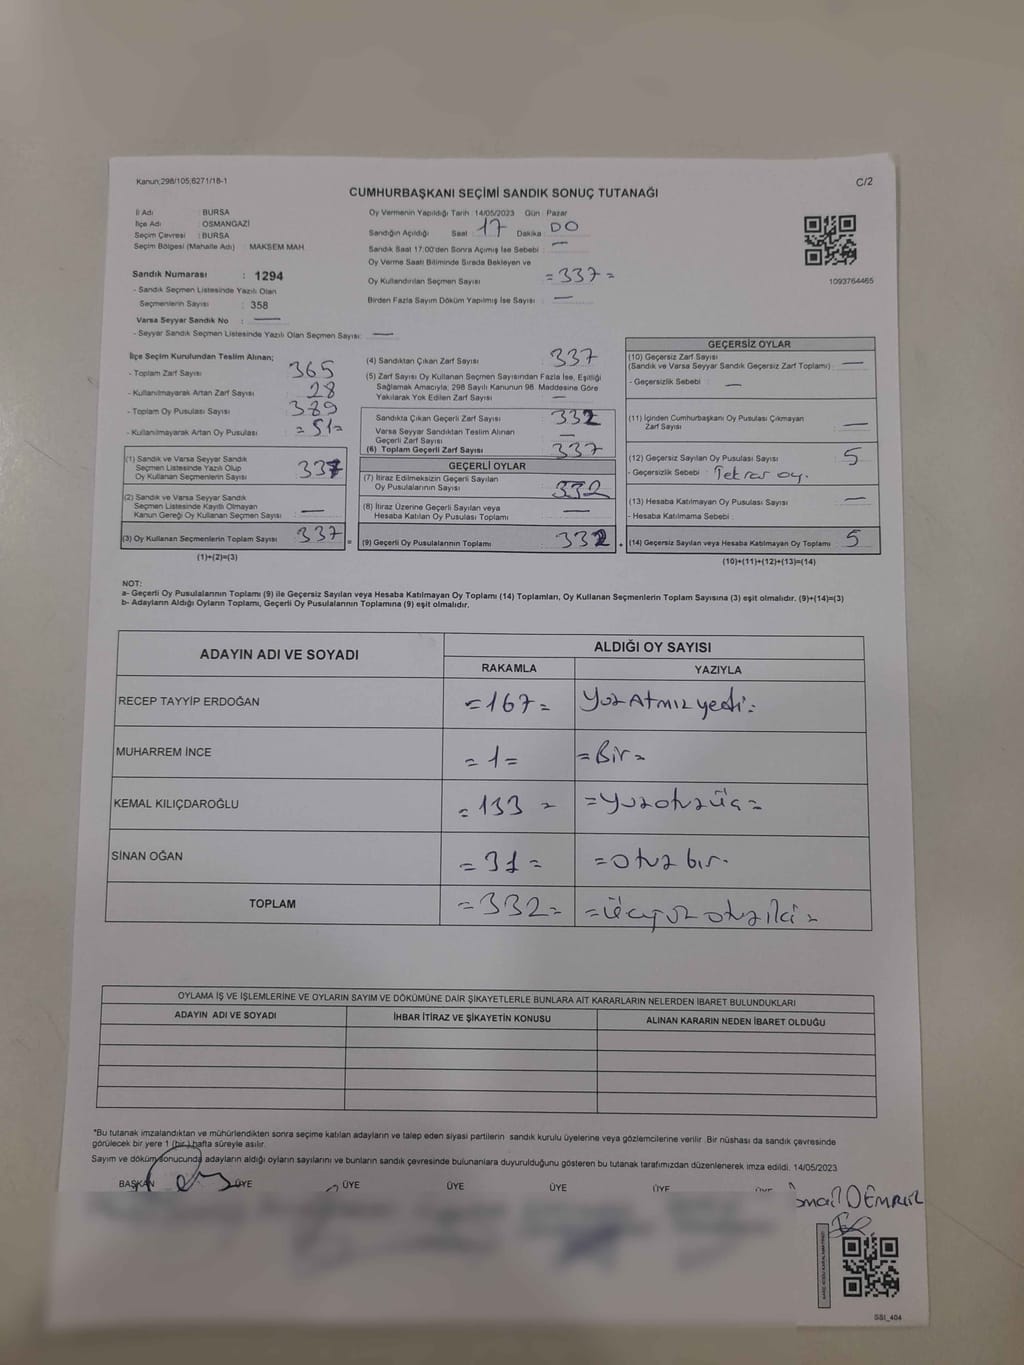 Kanun;298/105;6271/18-1
C/2
CUMHURBAŞKANI SEÇİMİ SANDIK SONUÇ TUTANAĞI
İl Adı : BURSA
İlçe Adı : OSMANGAZİ
Seçim Çevresi : BURSA
Seçim Bölgesi (Mahalle Adı) : MAKSEM MAH.
Sandık Numarası : 1294
- Sandık Seçmen Listesinde Yazılı Olan
Seçmenlerin Sayısı : 358
Varsa Seyyar Sandık No : —
- Seyyar Sandık Seçmen Listesinde Yazılı Olan Seçmen Sayısı: —
Oy Vermenin Yapıldığı Tarih : 14/05/2023 Gün : Pazar
Sandığın Açıldığı Saat : 17 Dakika : 00
Sandık Saat 17:00'den Sonra Açımış İse Sebebi : —
Oy Verme Saati Bitiminde Sırada Bekleyen ve
Oy Kullandırılan Seçmen Sayısı = 337 =
Birden Fazla Sayım Döküm Yapılmış İse Sayısı : —
1093764465
İlçe Seçim Kurulundan Teslim Alınan;
- Toplam Zarf Sayısı : 365
- Kullanılmayarak Artan Zarf Sayısı : 28
- Toplam Oy Pusulası Sayısı : 389
- Kullanılmayarak Artan Oy Pusulası : = 51 =
(1) Sandık ve Varsa Seyyar Sandık
Seçmen Listesinde Yazılı Olup
Oy Kullanan Seçmenlerin Sayısı : 337
(2) Sandık ve Varsa Seyyar Sandık
Seçmen Listesinde Kayıtlı Olmayan
Kanun Gereği Oy Kullanan Seçmen Sayısı : —
(3) Oy Kullanan Seçmenlerin Toplam Sayısı : 337
(1)+(2)=(3)
(4) Sandıktan Çıkan Zarf Sayısı : 337
(5) Zarf Sayısı Oy Kullanan Seçmen Sayısından Fazla İse, Eşitliği
Sağlamak Amacıyla, 298 Sayılı Kanunun 98. Maddesine Göre
Yakılarak Yok Edilen Zarf Sayısı : —
Sandıkta Çıkan Geçerli Zarf Sayısı : 332
Varsa Seyyar Sandıktan Teslim Alınan
Geçerli Zarf Sayısı : —
(6) Toplam Geçerli Zarf Sayısı : 337
GEÇERLİ OYLAR
(7) İtiraz Edilmeksizin Geçerli Sayılan
Oy Pusulalarının Sayısı : 332
(8) İtiraz Üzerine Geçerli Sayılan veya
Hesaba Katılan Oy Pusulası Toplamı : —
= (9) Geçerli Oy Pusulalarının Toplamı : 332
GEÇERSİZ OYLAR
(10) Geçersiz Zarf Sayısı
(Sandık ve Varsa Seyyar Sandık Geçersiz Zarf Toplamı) : —
- Geçersizlik Sebebi : —
(11) İçinden Cumhurbaşkanı Oy Pusulası Çıkmayan
Zarf Sayısı : —
(12) Geçersiz Sayılan Oy Pusulası Sayısı : 5
- Geçersizlik Sebebi : Tekrar oy.
(13) Hesaba Katılmayan Oy Pusulası Sayısı : —
- Hesaba Katılmama Sebebi :
+ (14) Geçersiz Sayılan veya Hesaba Katılmayan Oy Toplamı : 5
(10)+(11)+(12)+(13)=(14)
NOT:
a- Geçerli Oy Pusulalarının Toplamı (9) ile Geçersiz Sayılan veya Hesaba Katılmayan Oy Toplamı (14) Toplamları, Oy Kullanan Seçmenlerin Toplam Sayısına (3) eşit olmalıdır. (9)+(14)=(3)
b- Adayların Aldığı Oyların Toplamı, Geçerli Oy Pusulalarının Toplamına (9) eşit olmalıdır.
ADAYIN ADI VE SOYADI ALDIĞI OY SAYISI
RAKAMLA YAZIYLA
RECEP TAYYİP ERDOĞAN = 167 = Yüz Atmız yedi =
MUHARREM İNCE = 1 = = Bir =
KEMAL KILIÇDAROĞLU = 133 = = Yüz otuz üç =
SİNAN OĞAN = 31 = = otuz bir.
TOPLAM = 332 = = üçyüz otuz iki =
OYLAMA İŞ VE İŞLEMLERİNE VE OYLARIN SAYIM VE DÖKÜMÜNE DAİR ŞİKAYETLERLE BUNLARA AİT KARARLARIN NELERDEN İBARET BULUNDUKLARI
ADAYIN ADI VE SOYADI İHBAR İTİRAZ VE ŞİKAYETİN KONUSU ALINAN KARARIN NEDEN İBARET OLDUĞU
*Bu tutanak imzalandıktan ve mühürlendikten sonra seçime katılan adayların ve talep eden siyasi partilerin sandık kurulu üyelerine veya gözlemcilerine verilir .Bir nüshası da sandık çevresinde
görülecek bir yere 1 (bir ) hafta süreyle asılır.
Sayım ve döküm sonucunda adayların aldığı oyların sayılarını ve bunların sandık çevresinde bulunanlara duyurulduğunu gösteren bu tutanak tarafımızdan düzenlenerek imza edildi. 14/05/2023
BAŞKAN ÜYE ÜYE ÜYE ÜYE ÜYE ÜYE
SSI_404